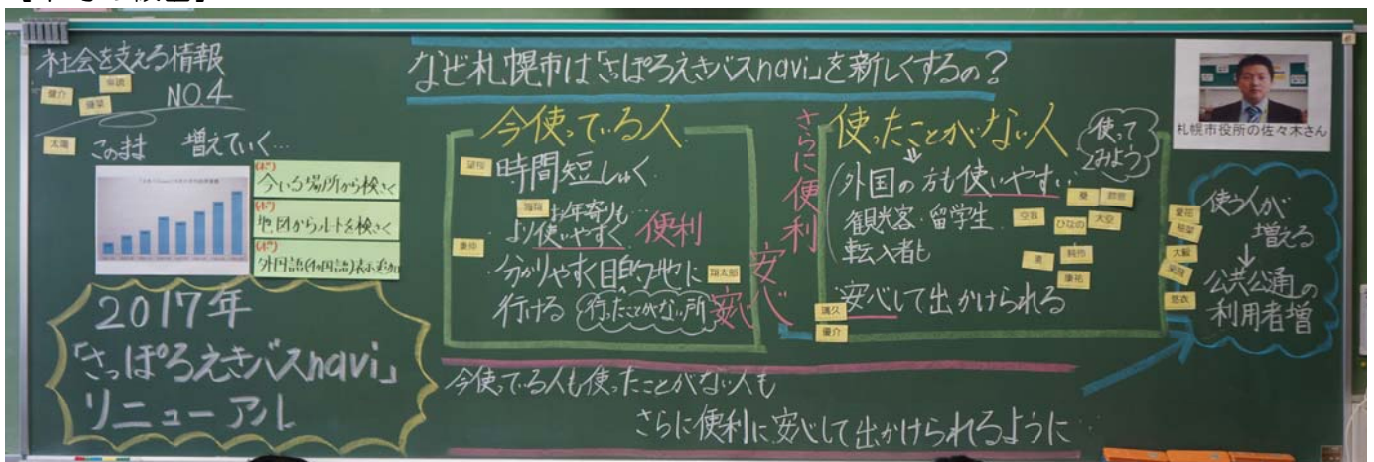 社会を支える情報
NO.4
このまま 増えていく…
(ボ)
今いる場所から検さく
(ボ)
地図からルートを検さく
(ボ)
2017年
「さっぽろえきバスnavi」
リニューアル
なぜ札幌市は「さっぽろえきバスnavi」を新しくするの?
今使っている人
時間短しゅく
お年寄りも…
より使いやすく 便利
分かりやすく目的地に
行ける 行ったことがない所
安心
さらに便利
安心
使ったことがない人
使って
みよう
外国の方も使いやすい
観光客・留学生
転入者も
安心して出かけられる
今使っている人も使ったことがない人も
さらに便利に安心して出かけられるように…
札幌市役所の佐々木さん
使う人が
増える
↓
公共交通の
利用者増
太陽
健介
優介
大空
ひなの